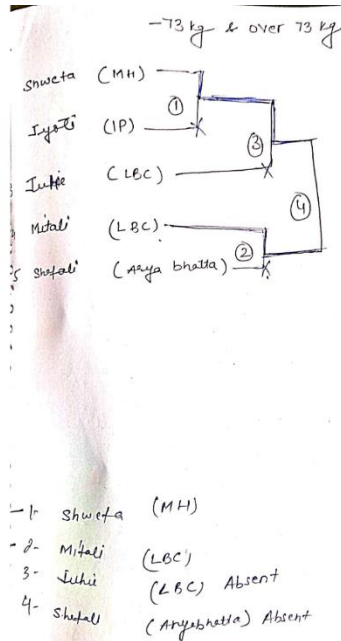 -73 kg & over 73 kg
Shweta (MH)
①
Jyoti (IP)
③
Juhie (LBC)
④
4 Mitali (LBC)
②
5 Shefali (Arya bhatta)
-1- Shweta (MH)
-2- Mitali (LBC)
3- Juhie (LBC) Absent
4- Shefali (Aryabhatta) Absent